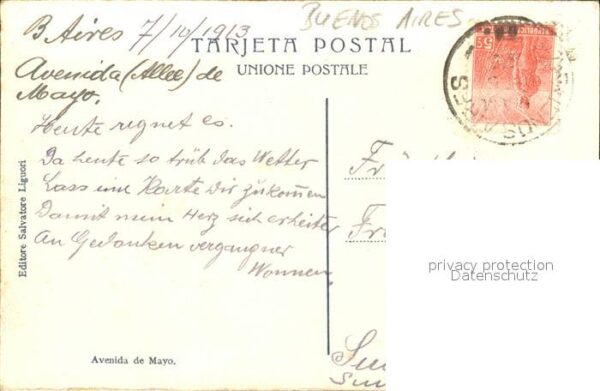 B Aires 7/10/1913
BUENOS AIRES
TARJETA POSTAL
UNIONE POSTALE
Avenida (Allee) de
Mayo.
Heute regnet es.
Da heute so trüb das Wetter
Lass eine Karte Dir zukommen
Damit mein Herz sich erheiter
An Gedanken vergangner
Wonnen.
Editore Salvatore Liguori
Avenida de Mayo.
REPUBLICA
5
privacy protection
Datenschutz